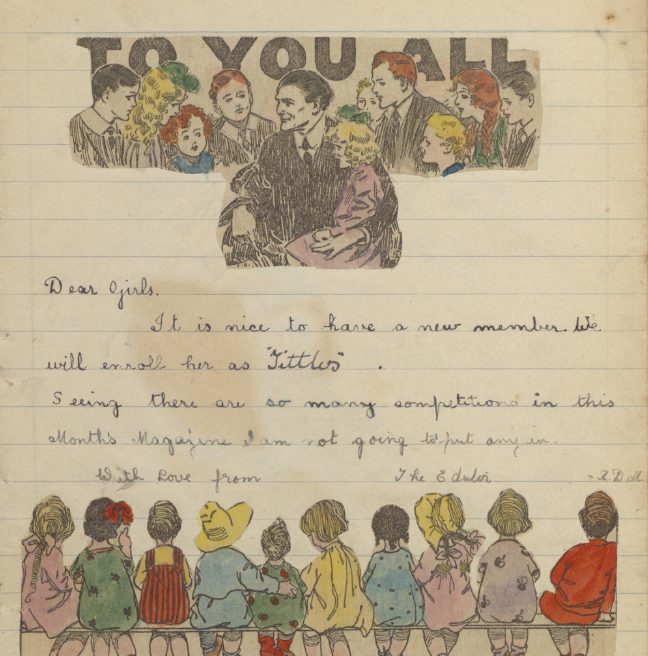 TO YOU ALL
Dear Girls.
It is nice to have a new member. We
will enroll her as "Tittles" .
Seeing there are so many competitions in this
Month's Magazine I am not going to put any in.
With Love from The Editor